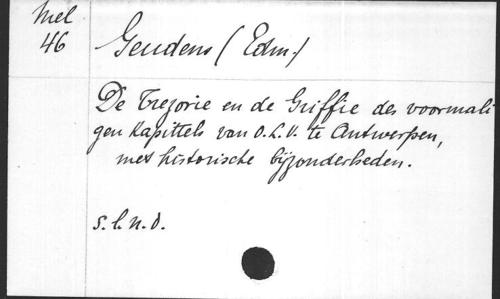 Mel
46
Geudens (Edm.)
De Trezorie en de Griffie des voormali
gen Kapittels van O.L.V. te Antwerpen,
met historische bijzonderheden.
s.l.n.d.